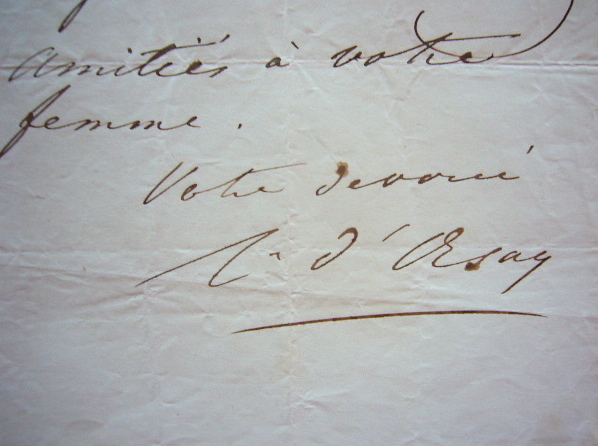 amitiés à votre
femme.
Votre devoué
d'Orsay